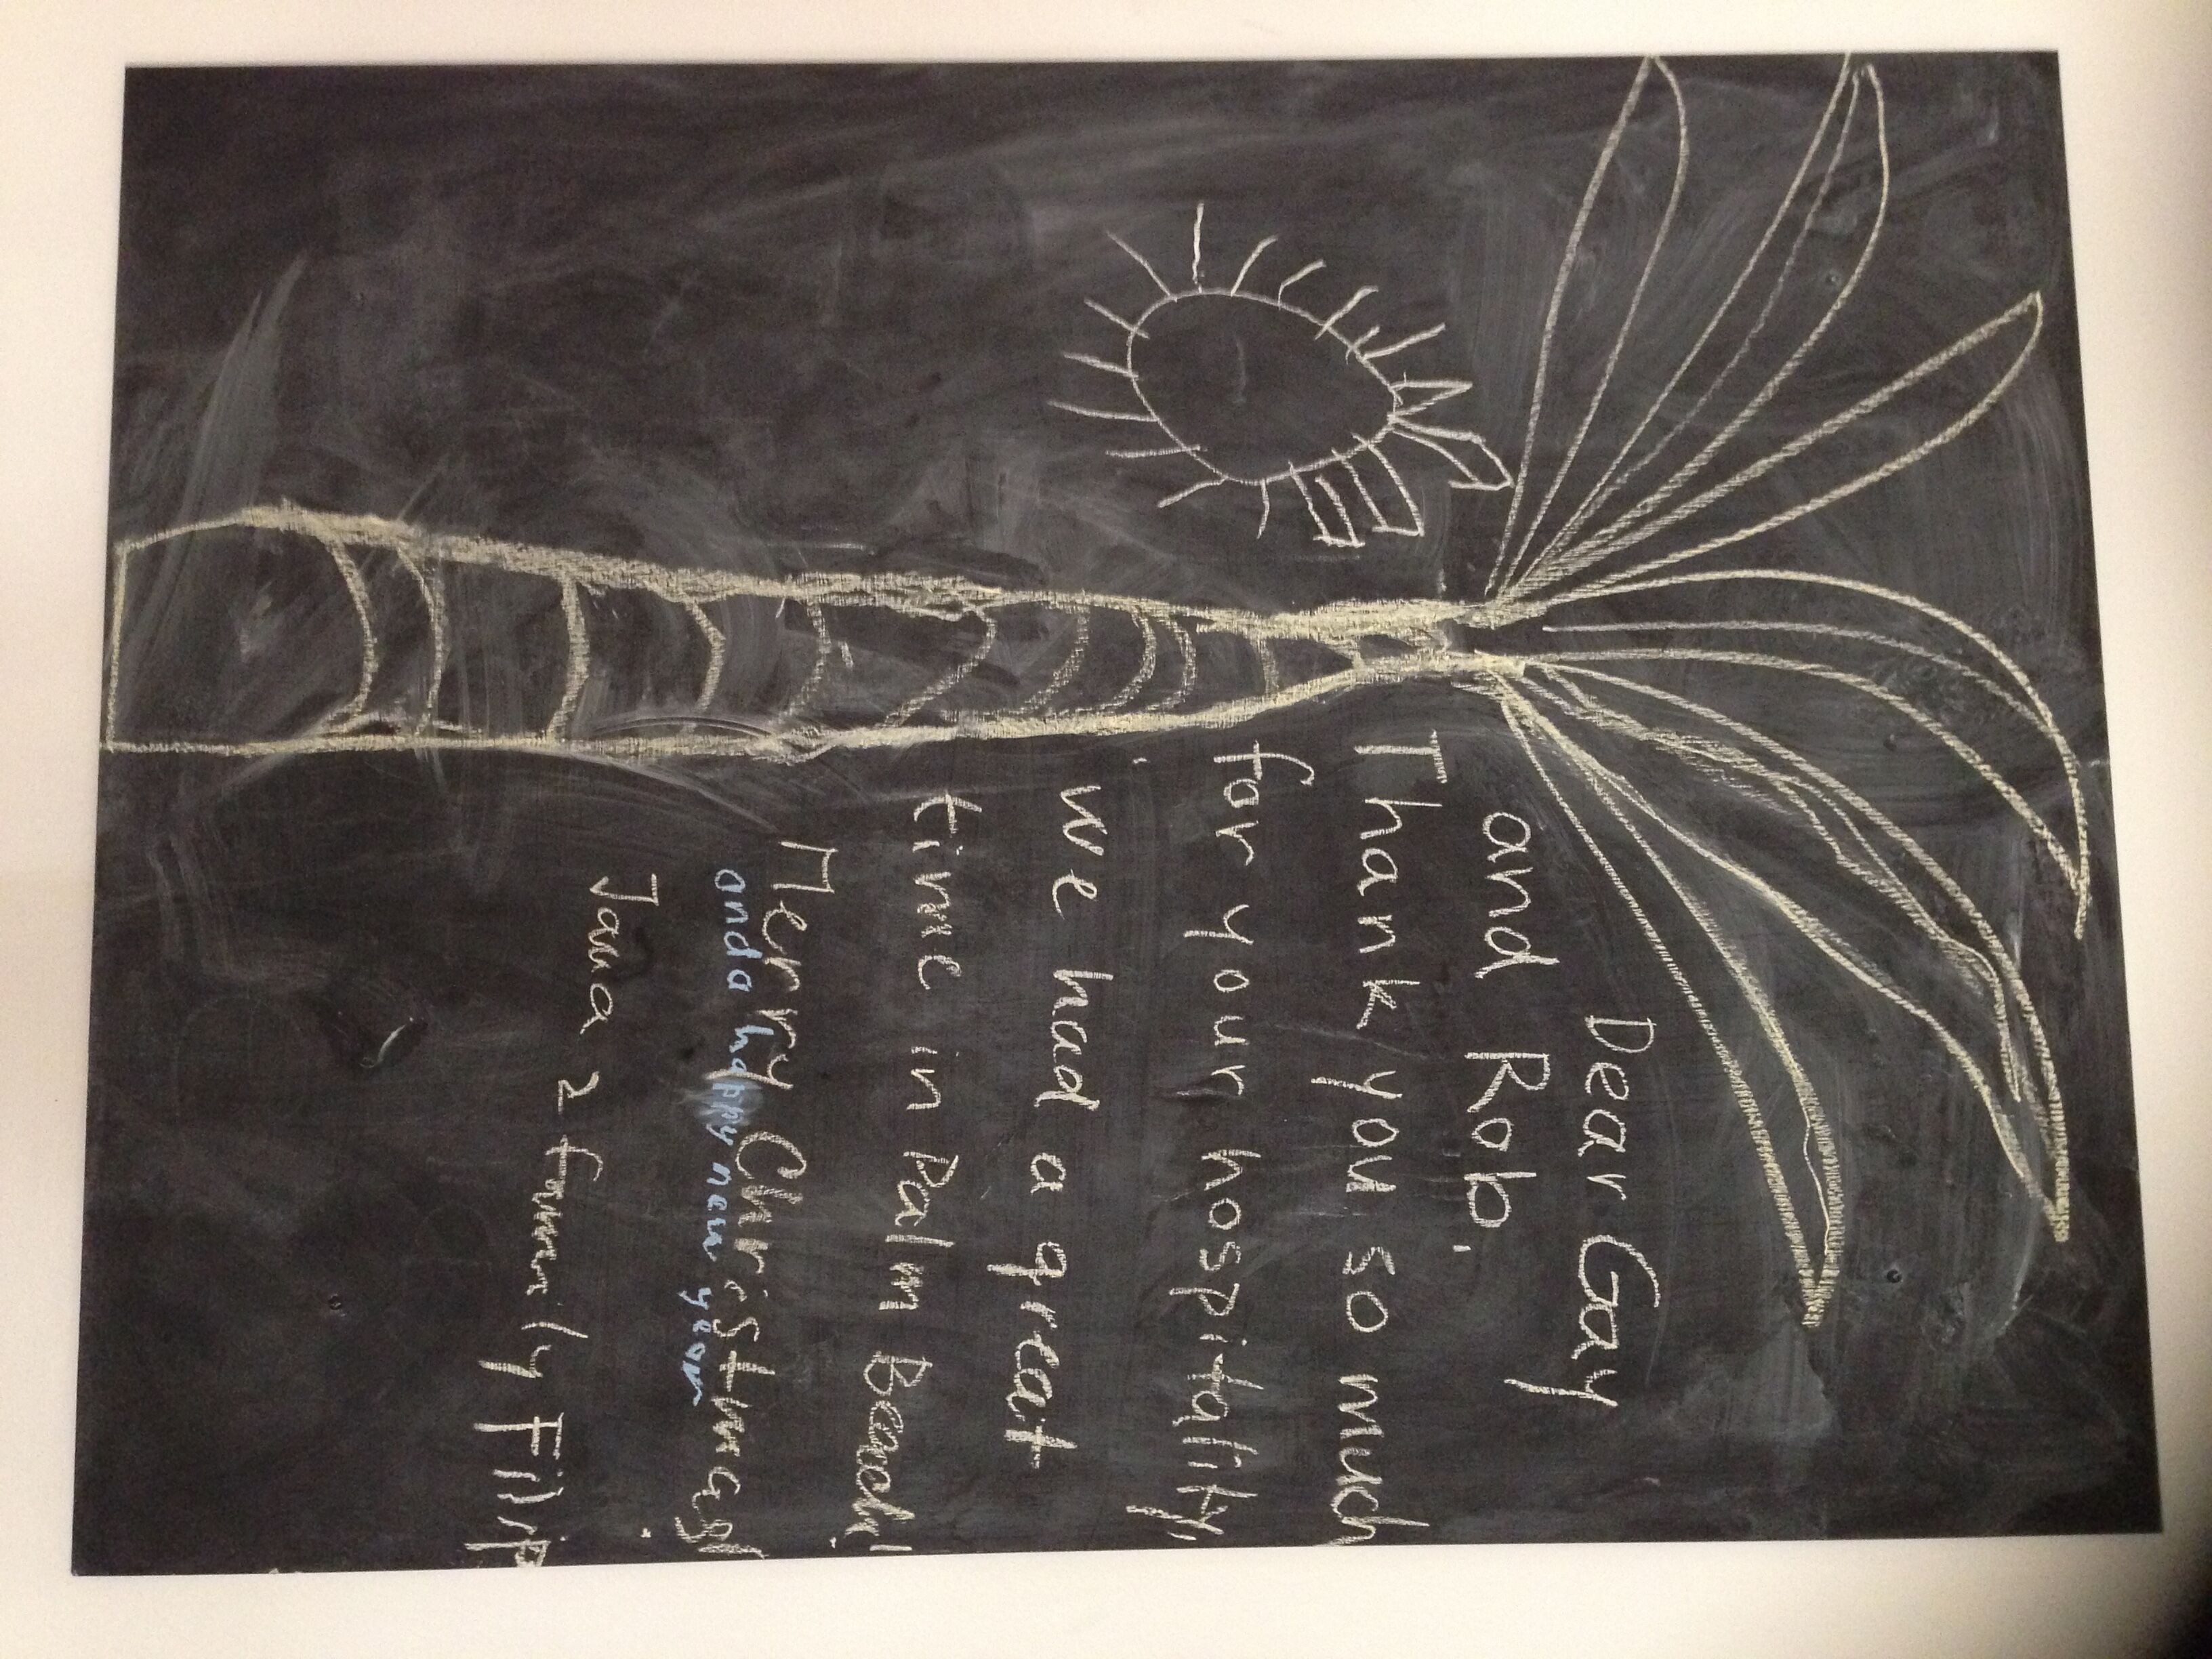 Dear Gay
and Rob,
Thank you so much
for your hospitality,
we had a great
time in Palm Beach!
Merry Christmas!
and a happy new year
Jana & family Filip